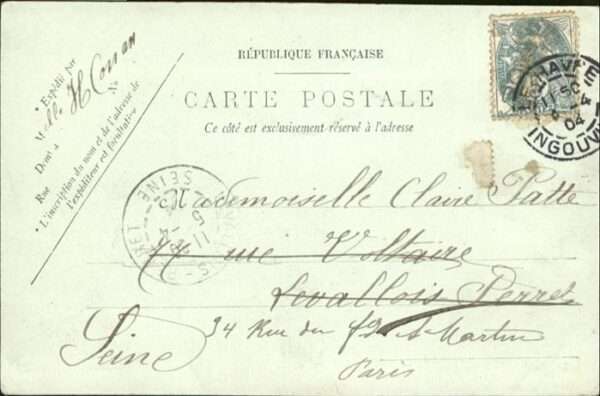 RÉPUBLIQUE FRANÇAISE
CARTE POSTALE
Ce côté est exclusivement réservé à l'adresse
Expédié par
Mlle H
Demt à
Rue
No
* L'inscription du nom et de l'adresse de
l'expéditeur est facultative
LE HAVRE
04
INGOUVI
SEINE
Mademoiselle Claire Patte
rue Voltaire
Levallois Perret
34 Rue du fg St Martin
Seine
Paris